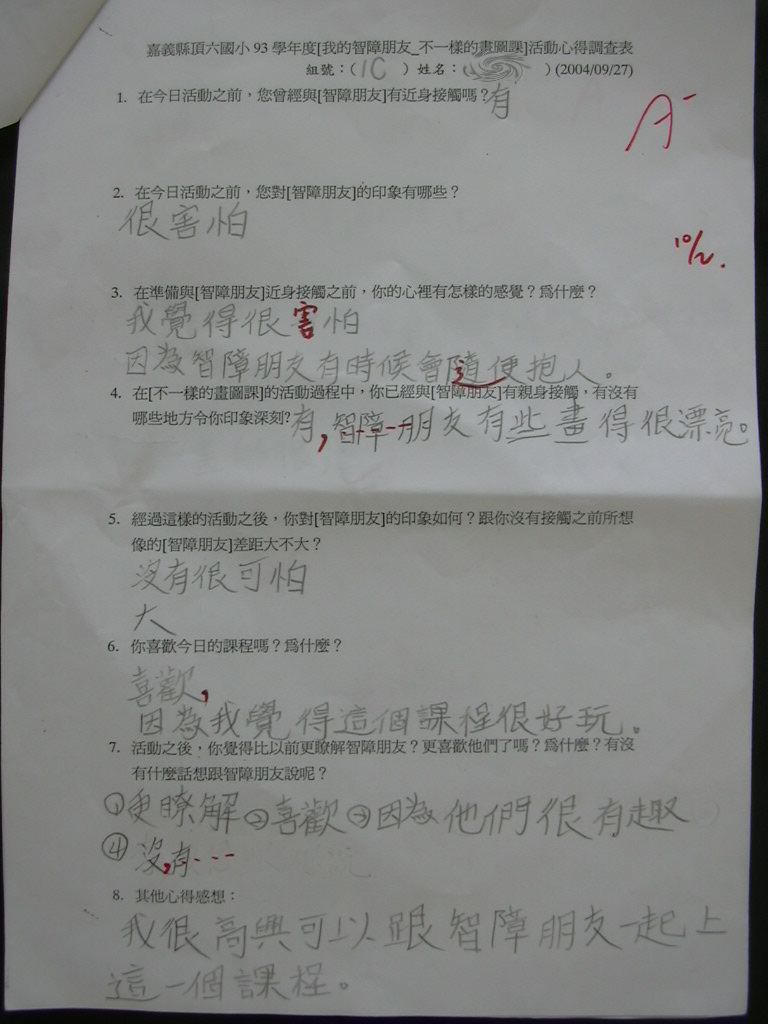 嘉義縣頂六國小 93 學年度[我的智障朋友_不一樣的畫圖課]活動心得調查表
組號：(1C ) 姓名：( ) (2004/09/27)
1. 在今日活動之前，您曾經與[智障朋友]有近身接觸嗎？有
A-
2. 在今日活動之前，您對[智障朋友]的印象有哪些？
很害怕
10/2.
3. 在準備與[智障朋友]近身接觸之前，你的心裡有怎樣的感覺？爲什麼？
我覺得很害怕
因為智障朋友有時候會隨便抱人。
4. 在[不一樣的畫圖課]的活動過程中，你已經與[智障朋友]有親身接觸，有沒有
哪些地方令你印象深刻?有，智障朋友有些畫得很漂亮。
5. 經過這樣的活動之後，你對[智障朋友]的印象如何？跟你沒有接觸之前所想
像的[智障朋友]差距大不大？
沒有很可怕
大
6. 你喜歡今日的課程嗎？爲什麼？
喜歡，
因為我覺得這個課程很好玩。
7. 活動之後，你覺得比以前更瞭解智障朋友？更喜歡他們了嗎？爲什麼？有沒
有什麼話想跟智障朋友說呢？
①更瞭解②喜歡③因為他們很有趣
④沒有...
8. 其他心得感想：
我很高興可以跟智障朋友一起上
這一個課程。